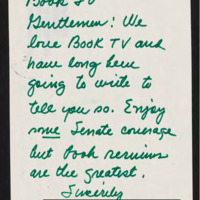 Book TV
Gentlemen: We
love Book TV and
have long been
going to write to
tell you so. Enjoy
some Senate coverage
but Book reviews
are the greatest.
Sincerely